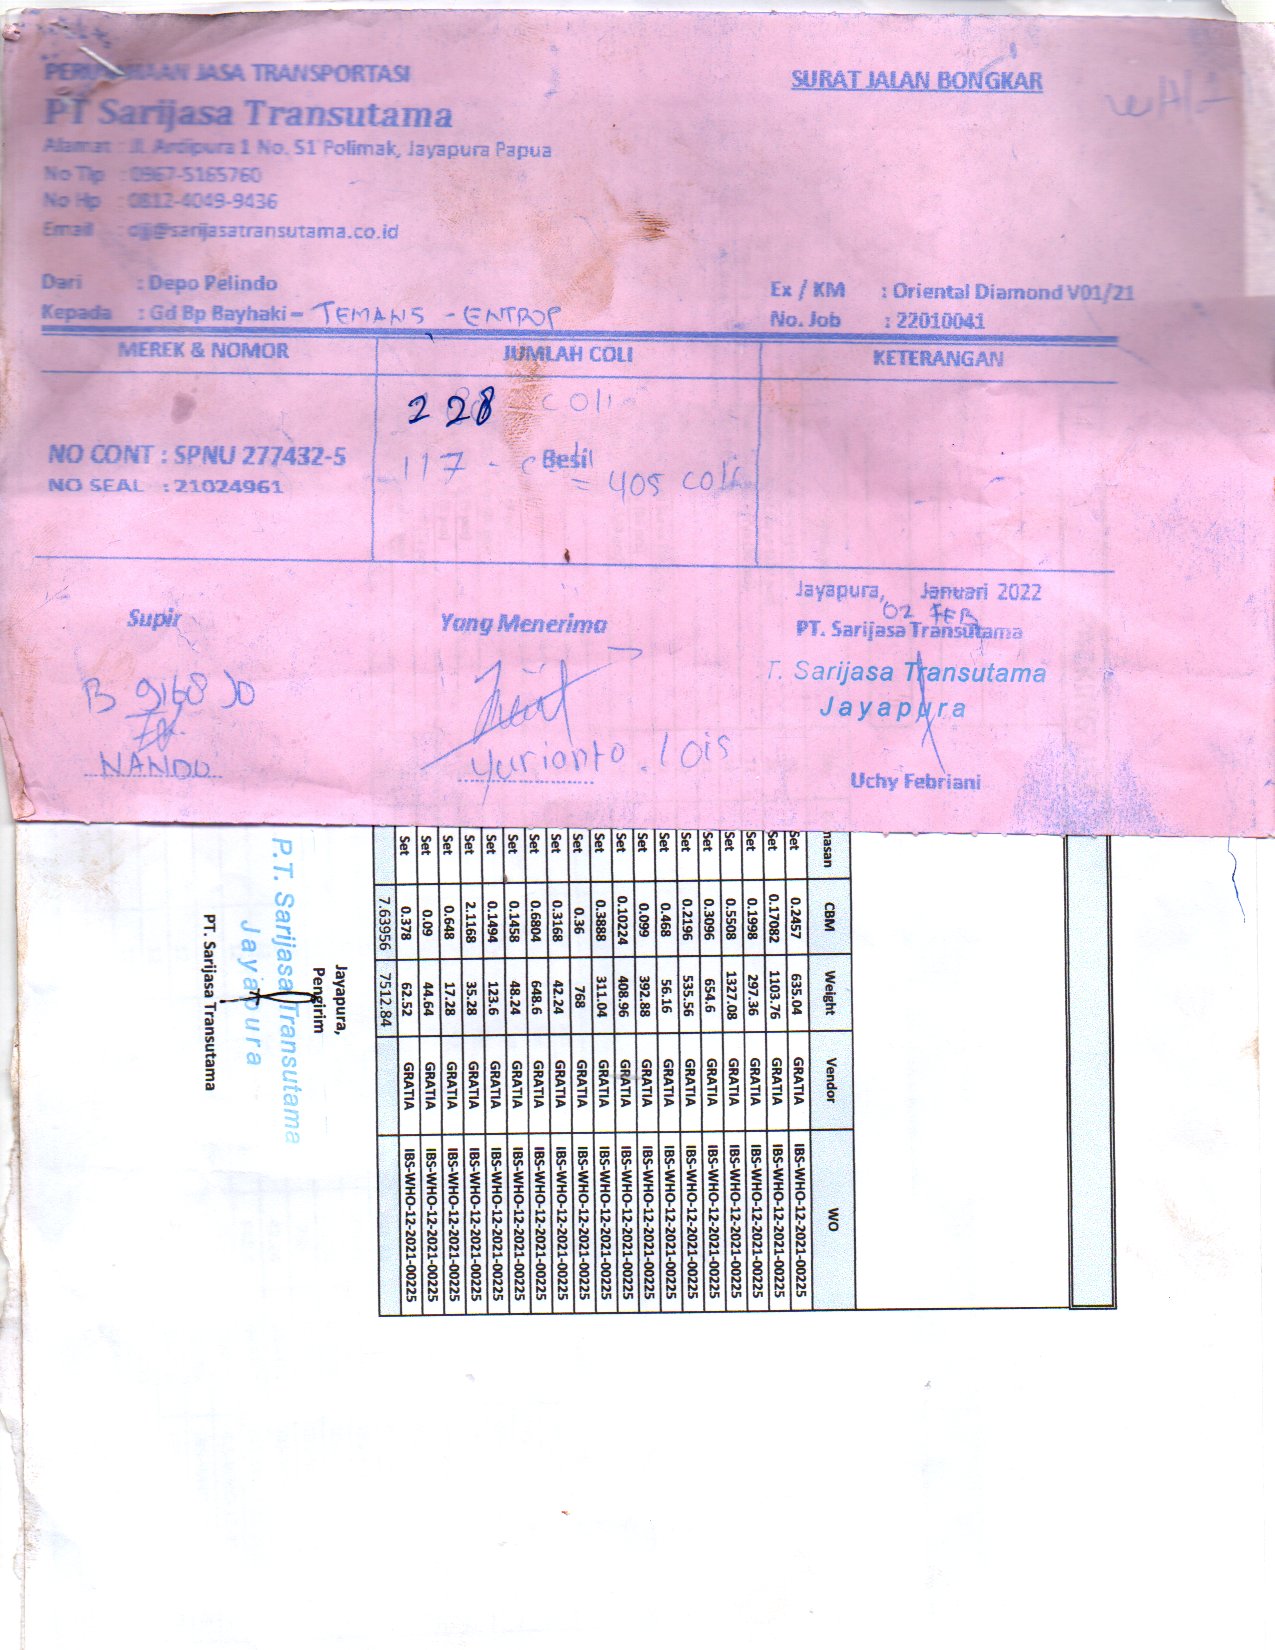 JASA TRANSPORTASI
PT Sarijasa Transutama
Alamat : Jl. Ardipura 1 No. 51 Polimak, Jayapura Papua
No Tlp : 0967-5165760
No Hp : 0812-4049-9436
Email : djj@sarijasatransutama.co.id
SURAT JALAN BONGKAR
Dari : Depo Pelindo
Kepada : Gd Bp Bayhaki – TEMANS - ENTROP
Ex / KM : Oriental Diamond V01/21
No. Job : 22010041
MEREK & NOMOR JUMLAH COLI KETERANGAN
228 coli
NO CONT : SPNU 277432-5
NO SEAL : 21024961
117 - Besi
= 405 coli
Jayapura, Januari 2022
02 FEB
Supir Yang Menerima PT. Sarijasa Transutama
T. Sarijasa Transutama
Jayapura
B 9168 JO
NANDO
Yurianto. Lois
Uchy Febriani
masan CBM Weight Vendor WO
Set 0.2457 635.04 GRATIA IBS-WHO-12-2021-00225
Set 0.17082 1103.76 GRATIA IBS-WHO-12-2021-00225
Set 0.1998 297.36 GRATIA IBS-WHO-12-2021-00225
Set 0.5508 1327.08 GRATIA IBS-WHO-12-2021-00225
Set 0.3096 654.6 GRATIA IBS-WHO-12-2021-00225
Set 0.2196 535.56 GRATIA IBS-WHO-12-2021-00225
Set 0.468 56.16 GRATIA IBS-WHO-12-2021-00225
Set 0.099 392.88 GRATIA IBS-WHO-12-2021-00225
Set 0.10224 408.96 GRATIA IBS-WHO-12-2021-00225
Set 0.3888 311.04 GRATIA IBS-WHO-12-2021-00225
Set 0.36 768 GRATIA IBS-WHO-12-2021-00225
Set 0.3168 42.24 GRATIA IBS-WHO-12-2021-00225
Set 0.6804 648.6 GRATIA IBS-WHO-12-2021-00225
Set 0.1458 48.24 GRATIA IBS-WHO-12-2021-00225
Set 0.1494 123.6 GRATIA IBS-WHO-12-2021-00225
Set 2.1168 35.28 GRATIA IBS-WHO-12-2021-00225
Set 0.648 17.28 GRATIA IBS-WHO-12-2021-00225
Set 0.09 44.64 GRATIA IBS-WHO-12-2021-00225
Set 0.378 62.52 GRATIA IBS-WHO-12-2021-00225
7.63956 7512.84
Jayapura,
Pengirim
P.T. Sarijasa Transutama
Jayapura
PT. Sarijasa Transutama